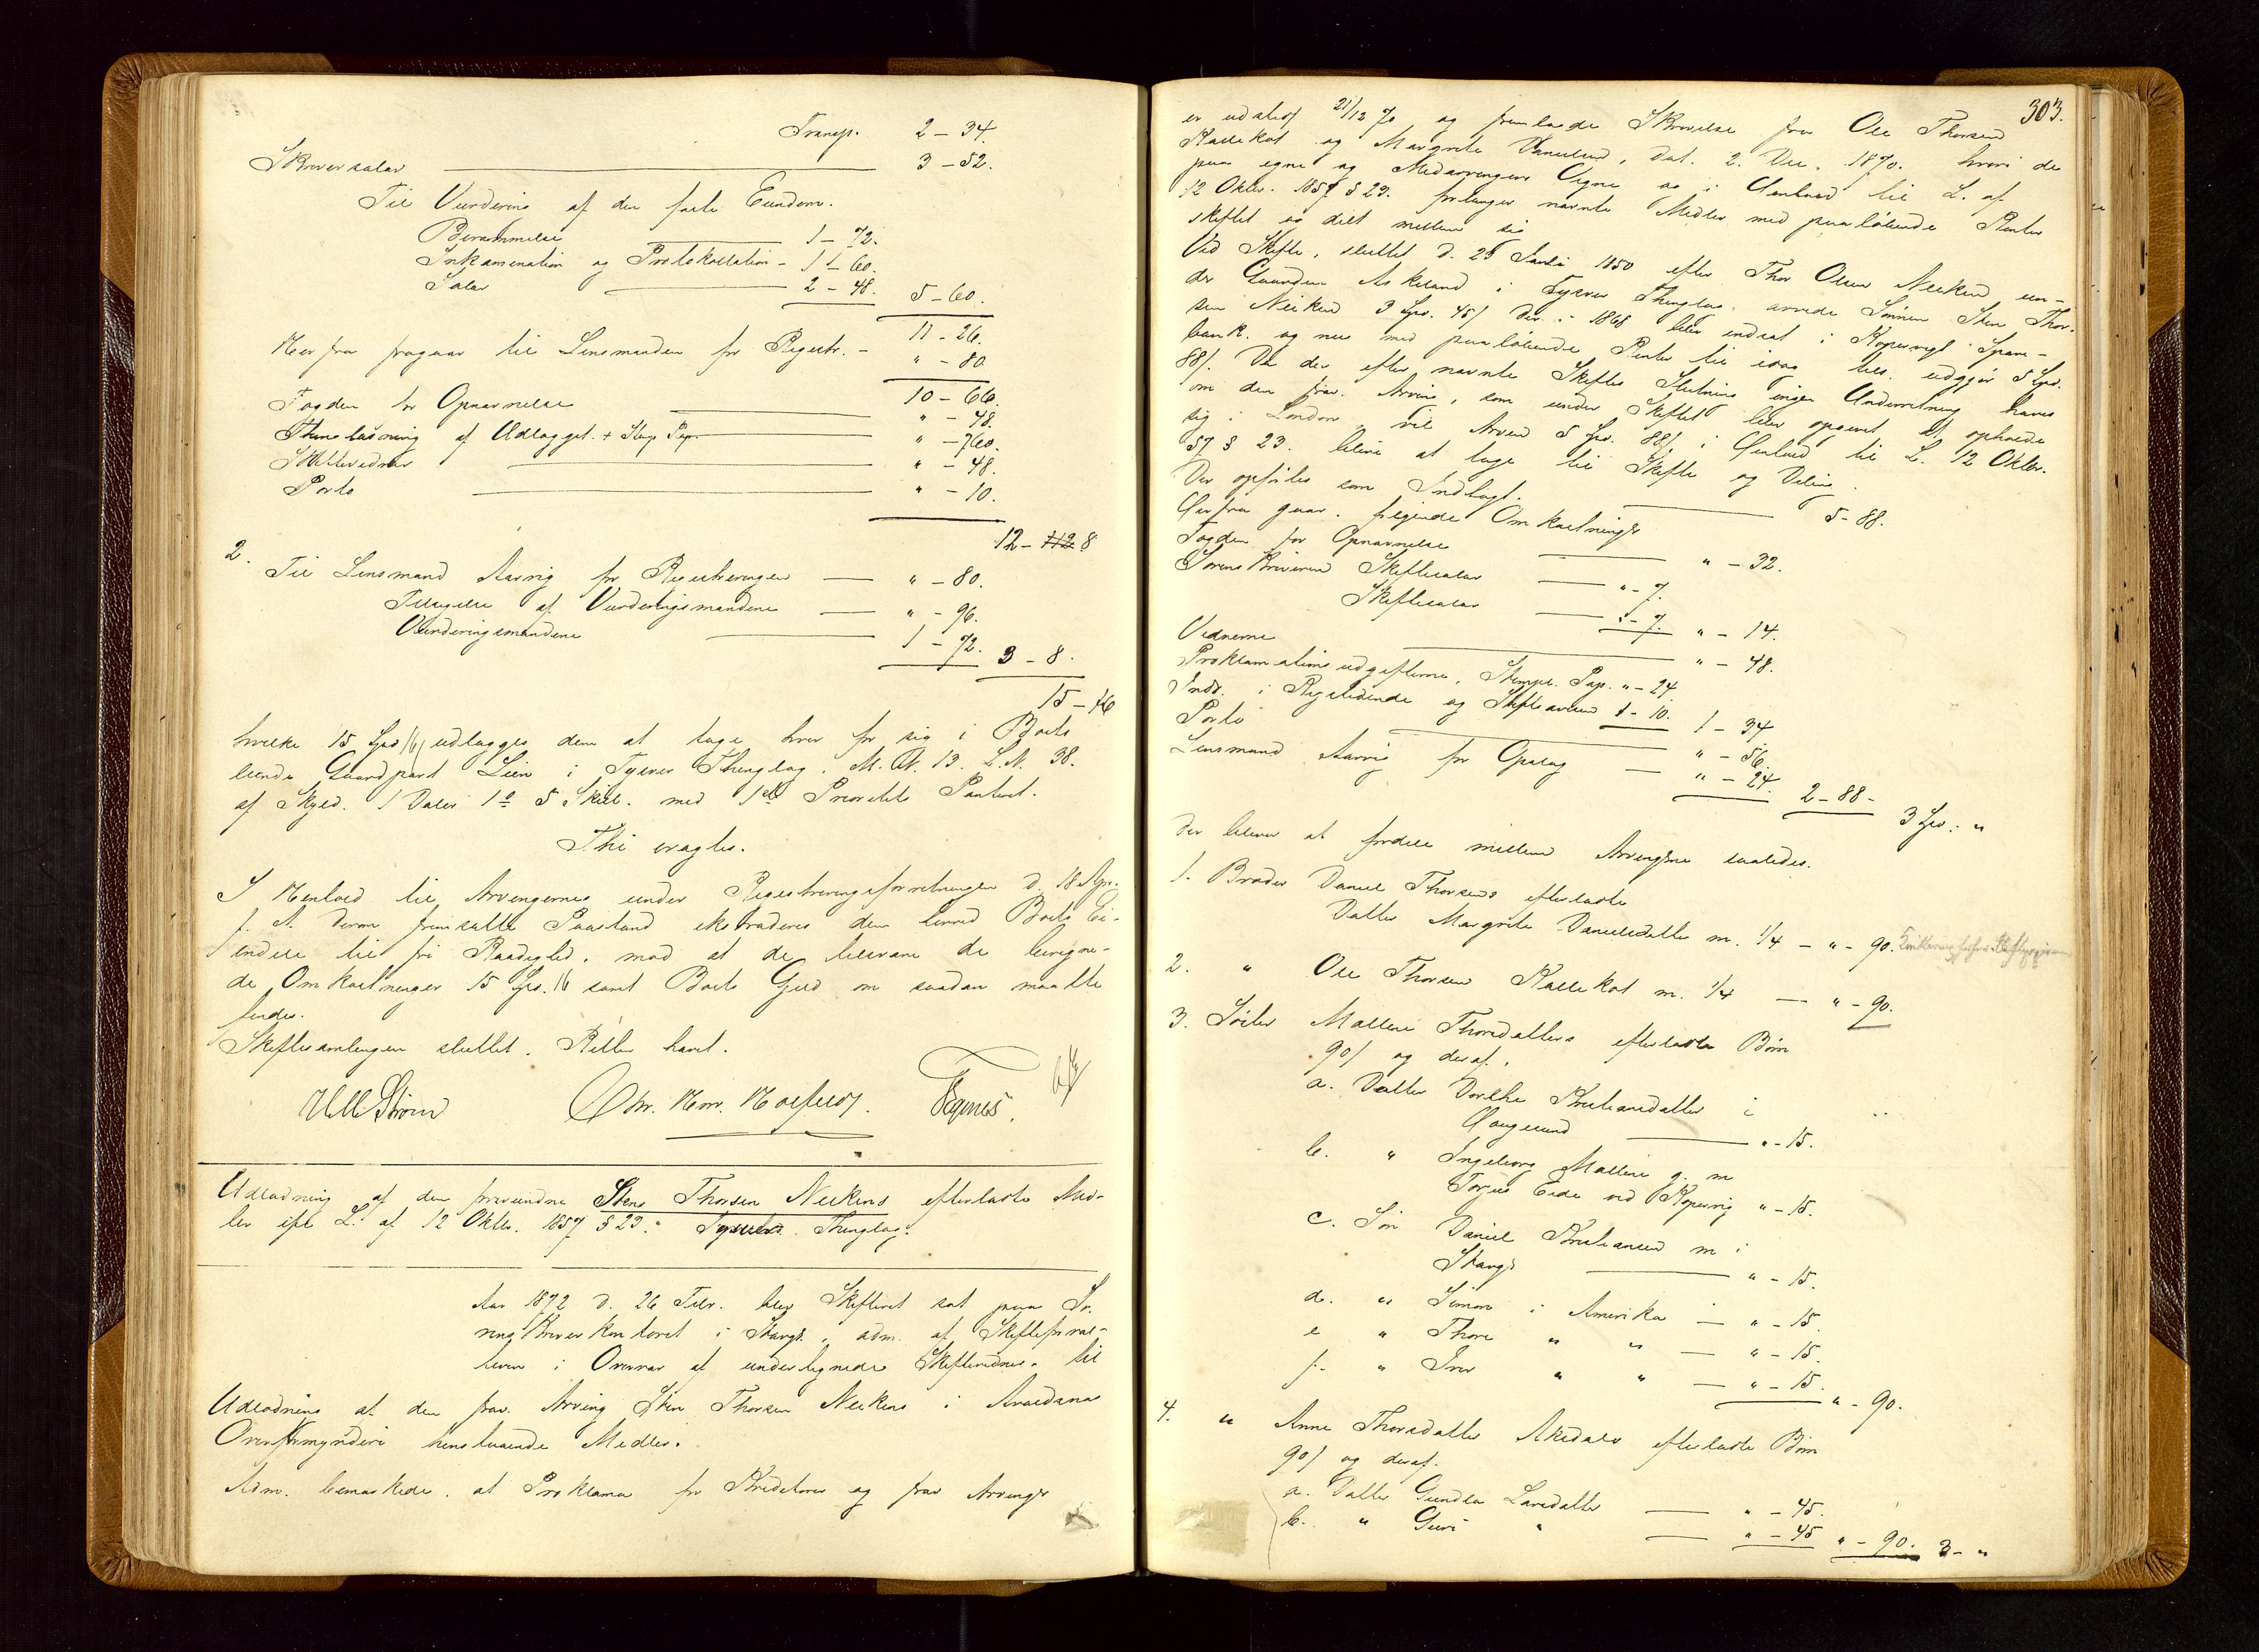 Transp. 2 – 34.
Skriversalar 3 – 52.
Til Vurdering af den faste Eiendom.
Berammelse 1 – 72.
Inkamination og Protokollation – 1 – 60.
Salar 2 – 48. 5 – 60.
11 – 26.
Herfra fragaar til Lensmanden for Registr. – " – 80
10 – 66.
Fogden for Opnævnelse " – 48.
Thinglæsning af Udlægget. + Stpl. Pap. " – 760.
Skiftevidner " – 48.
Porto " – 10.
12 – 112 8
2.
Til Lensmand Aarvig for Registreringen " – 80.
Tilsigelse af Vurderingsmændene " – 96.
Vurderingsmændene 1 – 72. 3 – 8.
15 – 16
hvilke 15 Spd 16 udlægges dem at tage hver for sig i Boets
eiende Gaardpart Lien i Tysvær Thinglag. M. N. 13. L. N. 38.
af Skyld. 1 Daler 1 5 Skill. med 1ste Prioritets Panteret.
Thi eragtes.
I Henhold til Arvingernes under Registreringsforretningen d. 18 Apr.
f. A. derom fremsatte Paastand ekstraderes dem herved Boets Ei-
endele til fri Raadighed, mod at de tilsvare de beregne-
de Omkostninger 15 Spd. 16 samt Boets Gjeld om saadan maatte
findes.
Skiftesamlingen sluttet. Retten hævet.
Strøm Chr. Fegnes.
Udlodning af den fraværende Stens Thorsen Neikens efterladte Mid-
ler ifl L. af 12 Oktbr. 1857 § 23. Tysvær Thinglag.
Aar 1872 d. 26 Febr. blev Skifteret sat paa So-
renskriverkontoret i Stavgr. adm. af Skifteforval-
teren i Overvær af undertegnede Skiftevidner til
Udlodning af den frav. Arving Sten Thorsen Neikens i Avaldsnæs
Overformynderi henstaaende Midler.
Adm. bemærkede, at Proklama for Kreditorer og frav Arvinger
303.
er udstedt 21/12 70 og fremlagde Skrivelse fra Ole Thorsen
Kallekot og Margrete Danielsd, dat. 2. Dec. 1870. hvori de
paa egne og Medarvingers Vegne og i Henhold til L. af
12 Oktbr. 1857 § 23. forlanger nævnte Midler med paaløbende Renter
skiftet og delt mellem sig
Ved Skifte, sluttet d. 25 1850 efter Thor Olsen Neiken un-
der Gaarden Askeland i Tysvær Thinglag arvede Sønnen Sten Thor-
sen Neiken 3 Spd. 45 der i 1868 blev indsat i Kopervigs Spare-
bank. og nu med paaløbende Renter til idag udgjør 5 Spd.
88. Da der efter nævnte Skiftes Slutning ingen Underretning haves
om den frav. Arving, som under Skiftet blev opgivet at opholde
sig i London, vil Arven 5 Spd. 88 i Henhold til L. 12 Oktbr.
57 § 23. blive at tage til Skifte og Deling.
Der opføres som Indtægt. 5 – 88.
Herfra gaar følgende Omkostninger
Fogden for Opnævnelse " – 32.
Sorenskriveren Skiftesalar " – 7.
Skiftesalar " – 7. " – 14.
Vidnerne " – 48.
Proklamationsudgifterne, Stempl. Pap. " – 24
Indr. i Rigstidende og Stiftsavisen 1 – 10. 1 – 34
Porto " – 56.
Lensmand Aarvig for Opslag " – 24. 2 – 88 –
3 Spd: "
der bliver at fordele mellem Arvingerne saaledes.
1. Broder Daniel Thorsens efterladte
Datter Margrete Danielsdatter m. 1/4 – " – 90.
2. " Ole Thorsen Kallekot m. 1/4 — " – 90.
3. Søster Mallene Thorsdatters efterladte Børn
90 og deraf.
a. Datter Dorthe Kristiansdatter i
Haugesund " – 15.
b. " Ingeborg Mallene g. m
Torjus Eide ved Kopervig " – 15.
c. Søn Daniel Kristiansen m i
Stavgr " – 15.
d. " Simon i Amerika — " – 15.
e " Thore " " — " – 15.
f. " Iver " " — " – 15. " – 90.
4. " Anne Thorsdatter Akedals efterladte Børn
90 og deraf.
a. Datter Gundla Larsdatter — " – 45.
b. " Guri " — " – 45 " – 90. 3 – "